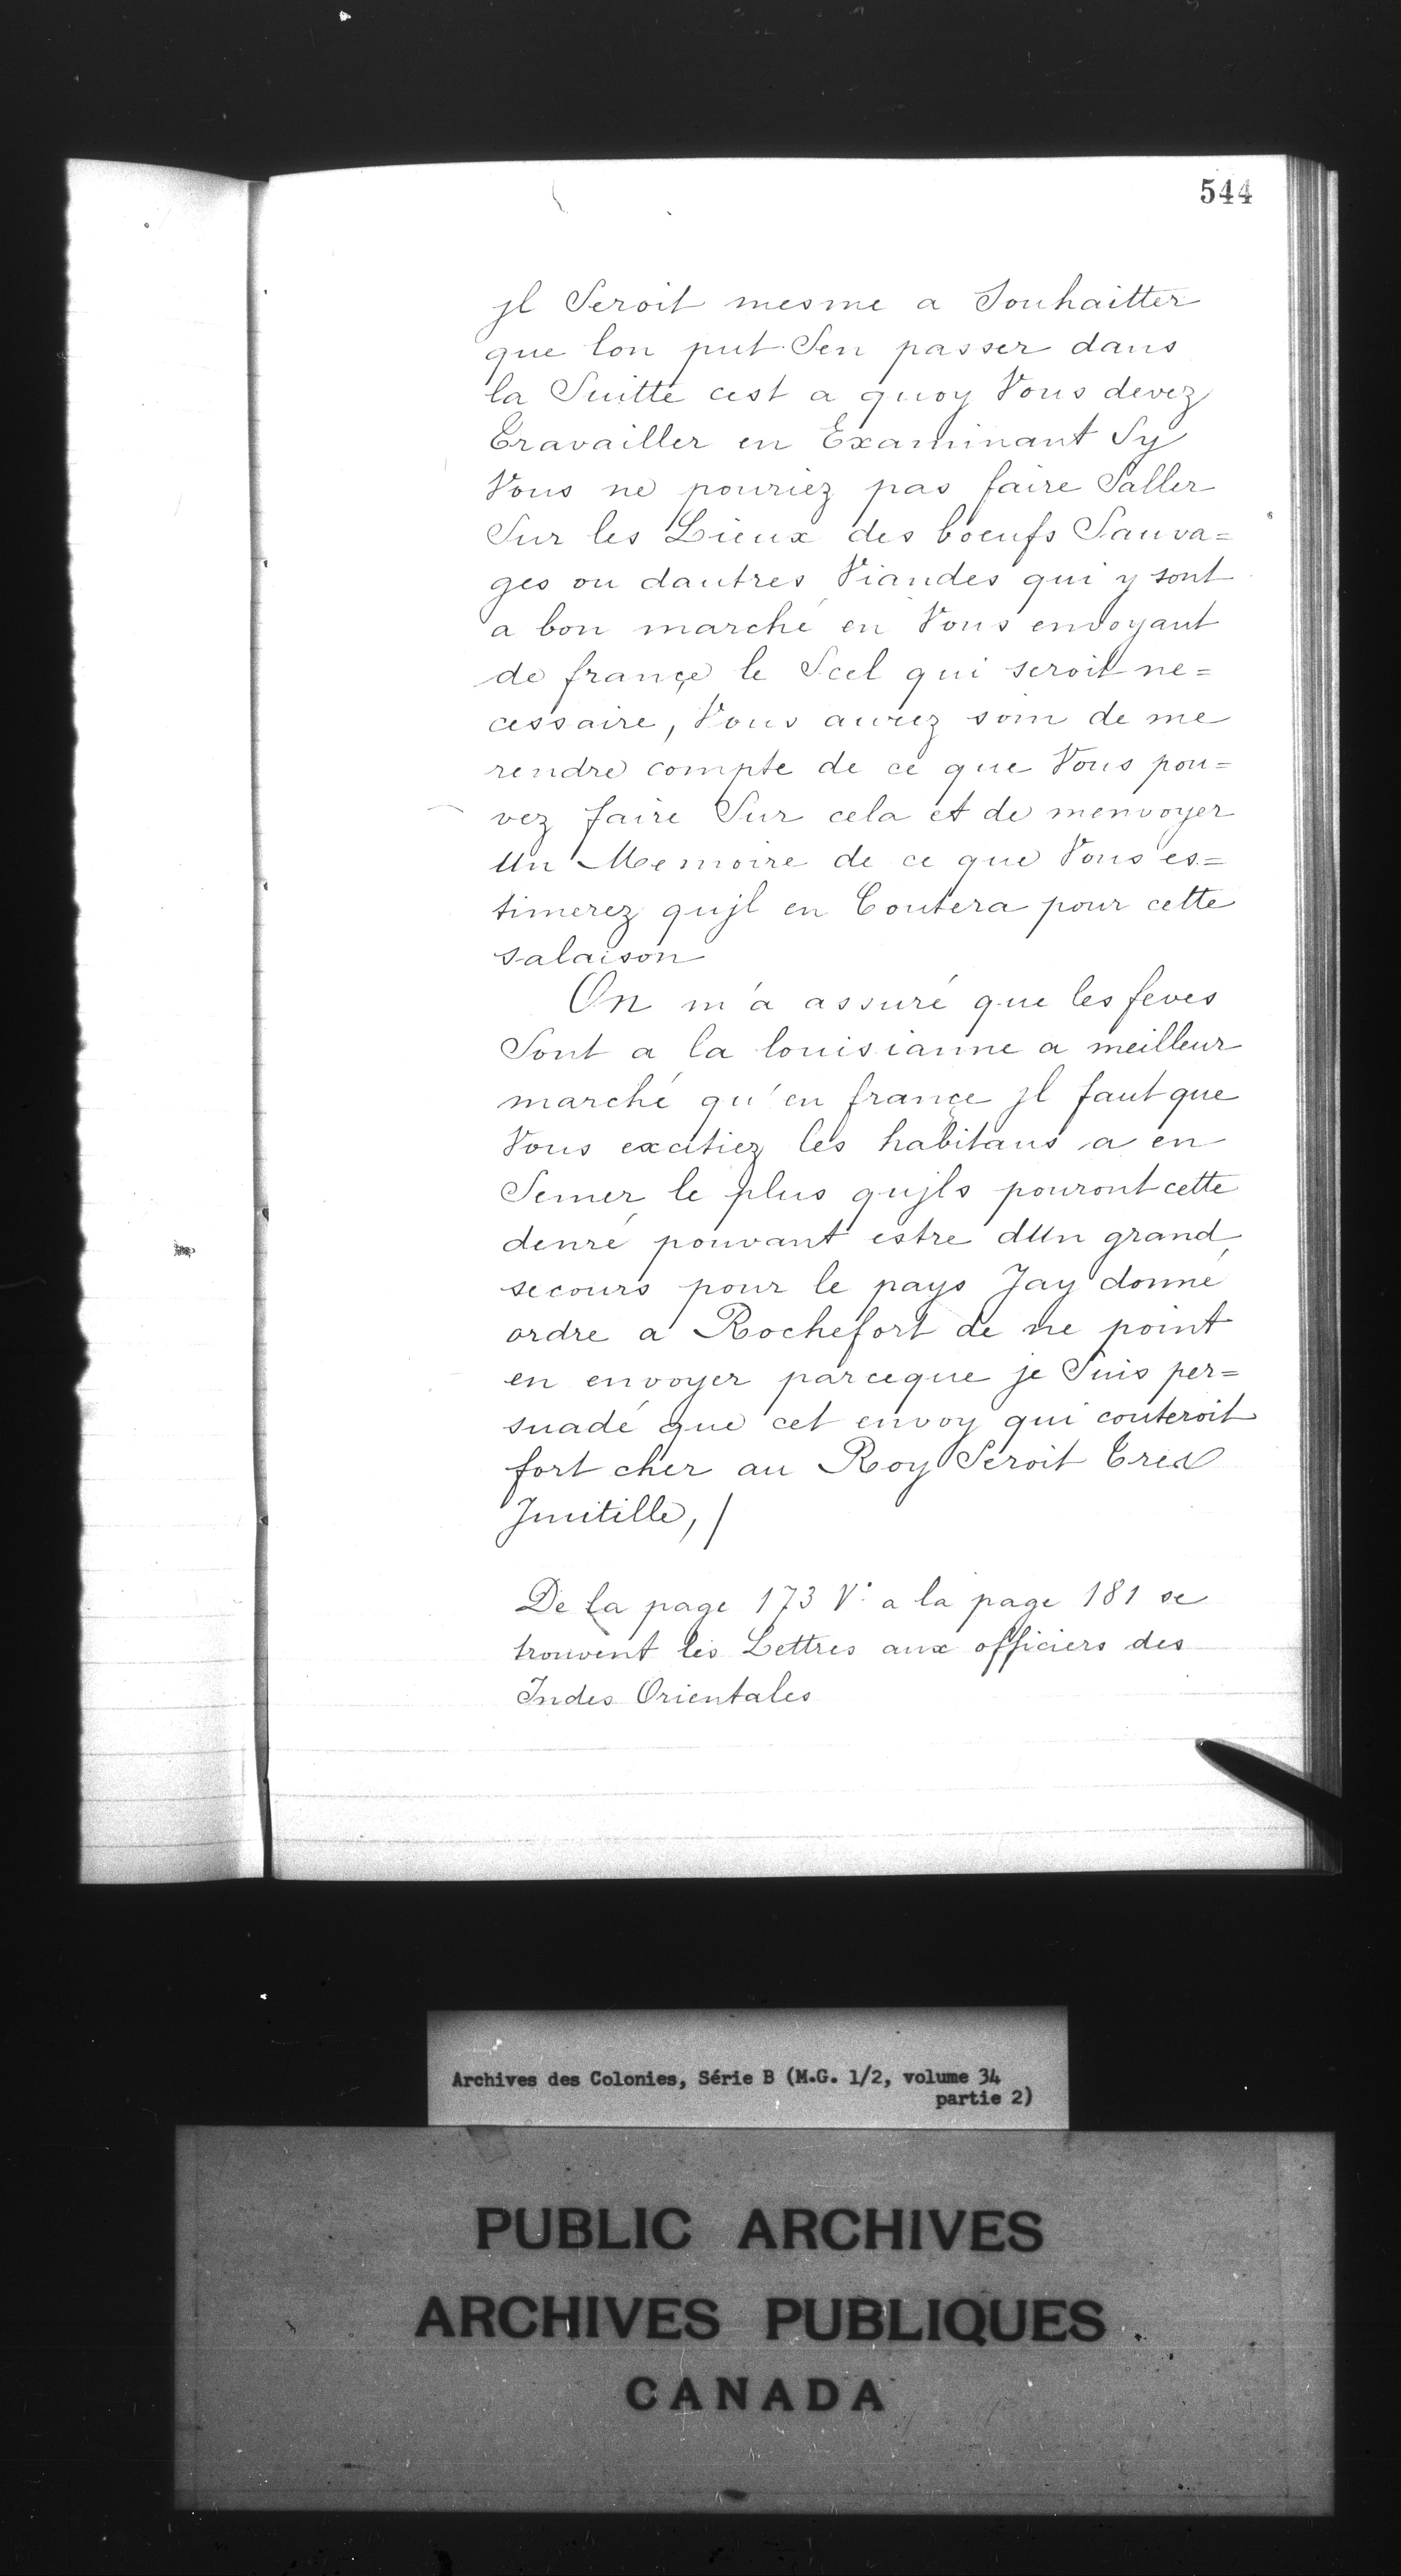 544
jl Seroit mesme a Souhaitter
que lon put Sen passer dans
la Suitte cest a quoy Vous devez
Travailler en Examinant Sy
Vous ne pouriez pas faire Saller
Sur les Lieux des boeufs Sauva=
ges ou dautres Viandes qui y sont
a bon marché en Vous envoyant
de françe le Scel qui seroit ne=
cessaire, Vous aurez soin de me
rendre compte de ce que Vous pou=
vez faire Sur cela et de menvoyer
Un Memoire de ce que Vous es=
timerez qujl en Coutera pour cette
salaison
On m'a assuré que les feves
Sont a la louisianne a meilleur
marché qu'en françe jl faut que
Vous excitiez les habitans a en
Semer le plus qujls pouront cette
denré pouvant estre dUn grand
secours pour le pays Jay donné
ordre a Rochefort de ne point
en envoyer parceque je Suis per=
suadé que cet envoy qui couteroit
fort cher au Roy Seroit Tres
Jnutille, /
De la page 173 V° a la page 181 se
trouvent les Lettres aux officiers des
Indes Orientales
Archives des Colonies, Série B (M.G. 1/2, volume 34
partie 2)
PUBLIC ARCHIVES
ARCHIVES PUBLIQUES
CANADA